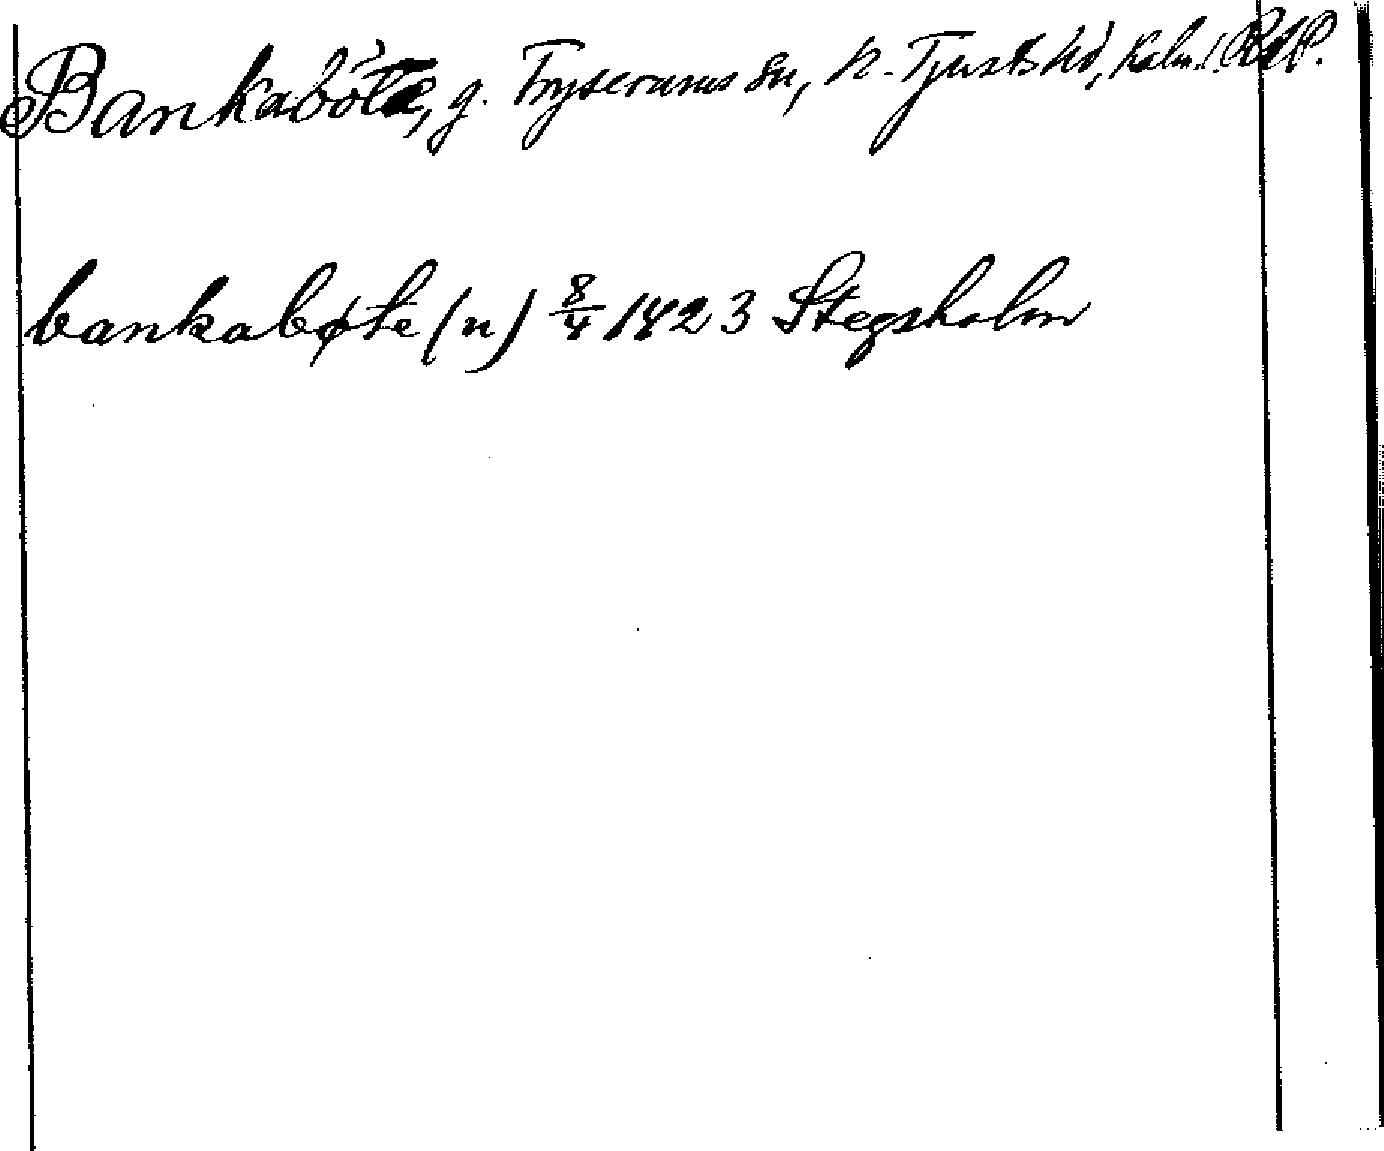 Bankabóte, g. Tryserums sn, N. Tjusts hd, Kalm.l.
bankabøte (n) 8/4 1423 Stegsholm